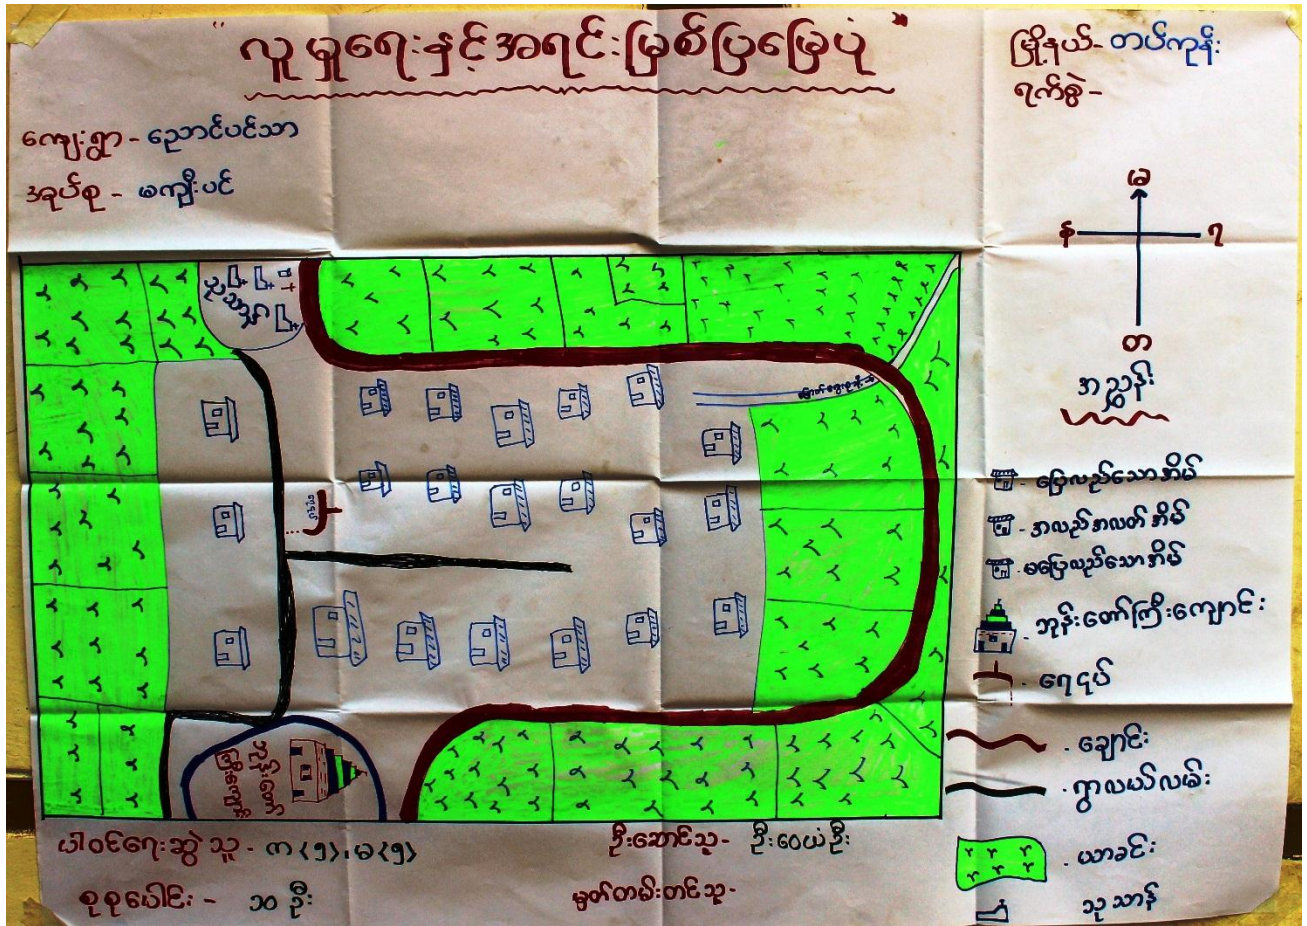 "လူမှုရေးနှင့်အရင်းမြစ်ပြမြေပုံ"
မြို့နယ်-တပ်ကုန်း
ရက်စွဲ-
ကျေးရွာ-ညောင်ပင်သာ
အုပ်စု-မကျီးပင်
မ
န
ဂ
တ
အညွှန်း
သုသာန်
ရေငုပ်
ပြေလည်သောအိမ်
-အလည်အလတ်အိမ်
-မပြေလည်သောအိမ်
-ဘုန်းတော်ကြီးကျောင်း
-ရေငုပ်
-ချောင်း
-ရွာလယ်လမ်း
-ယာခင်း
သုသာန်
ဘုန်းတော်
ကြီးကျောင်း
ပါဝင်ရေးဆွဲသူ-က(၅)၊မ(၅)
စုစုပေါင်း-၁၀ဦး
ဦးဆောင်သူ-ဦးဝေယံဦး
မှတ်တမ်းတင်သူ-